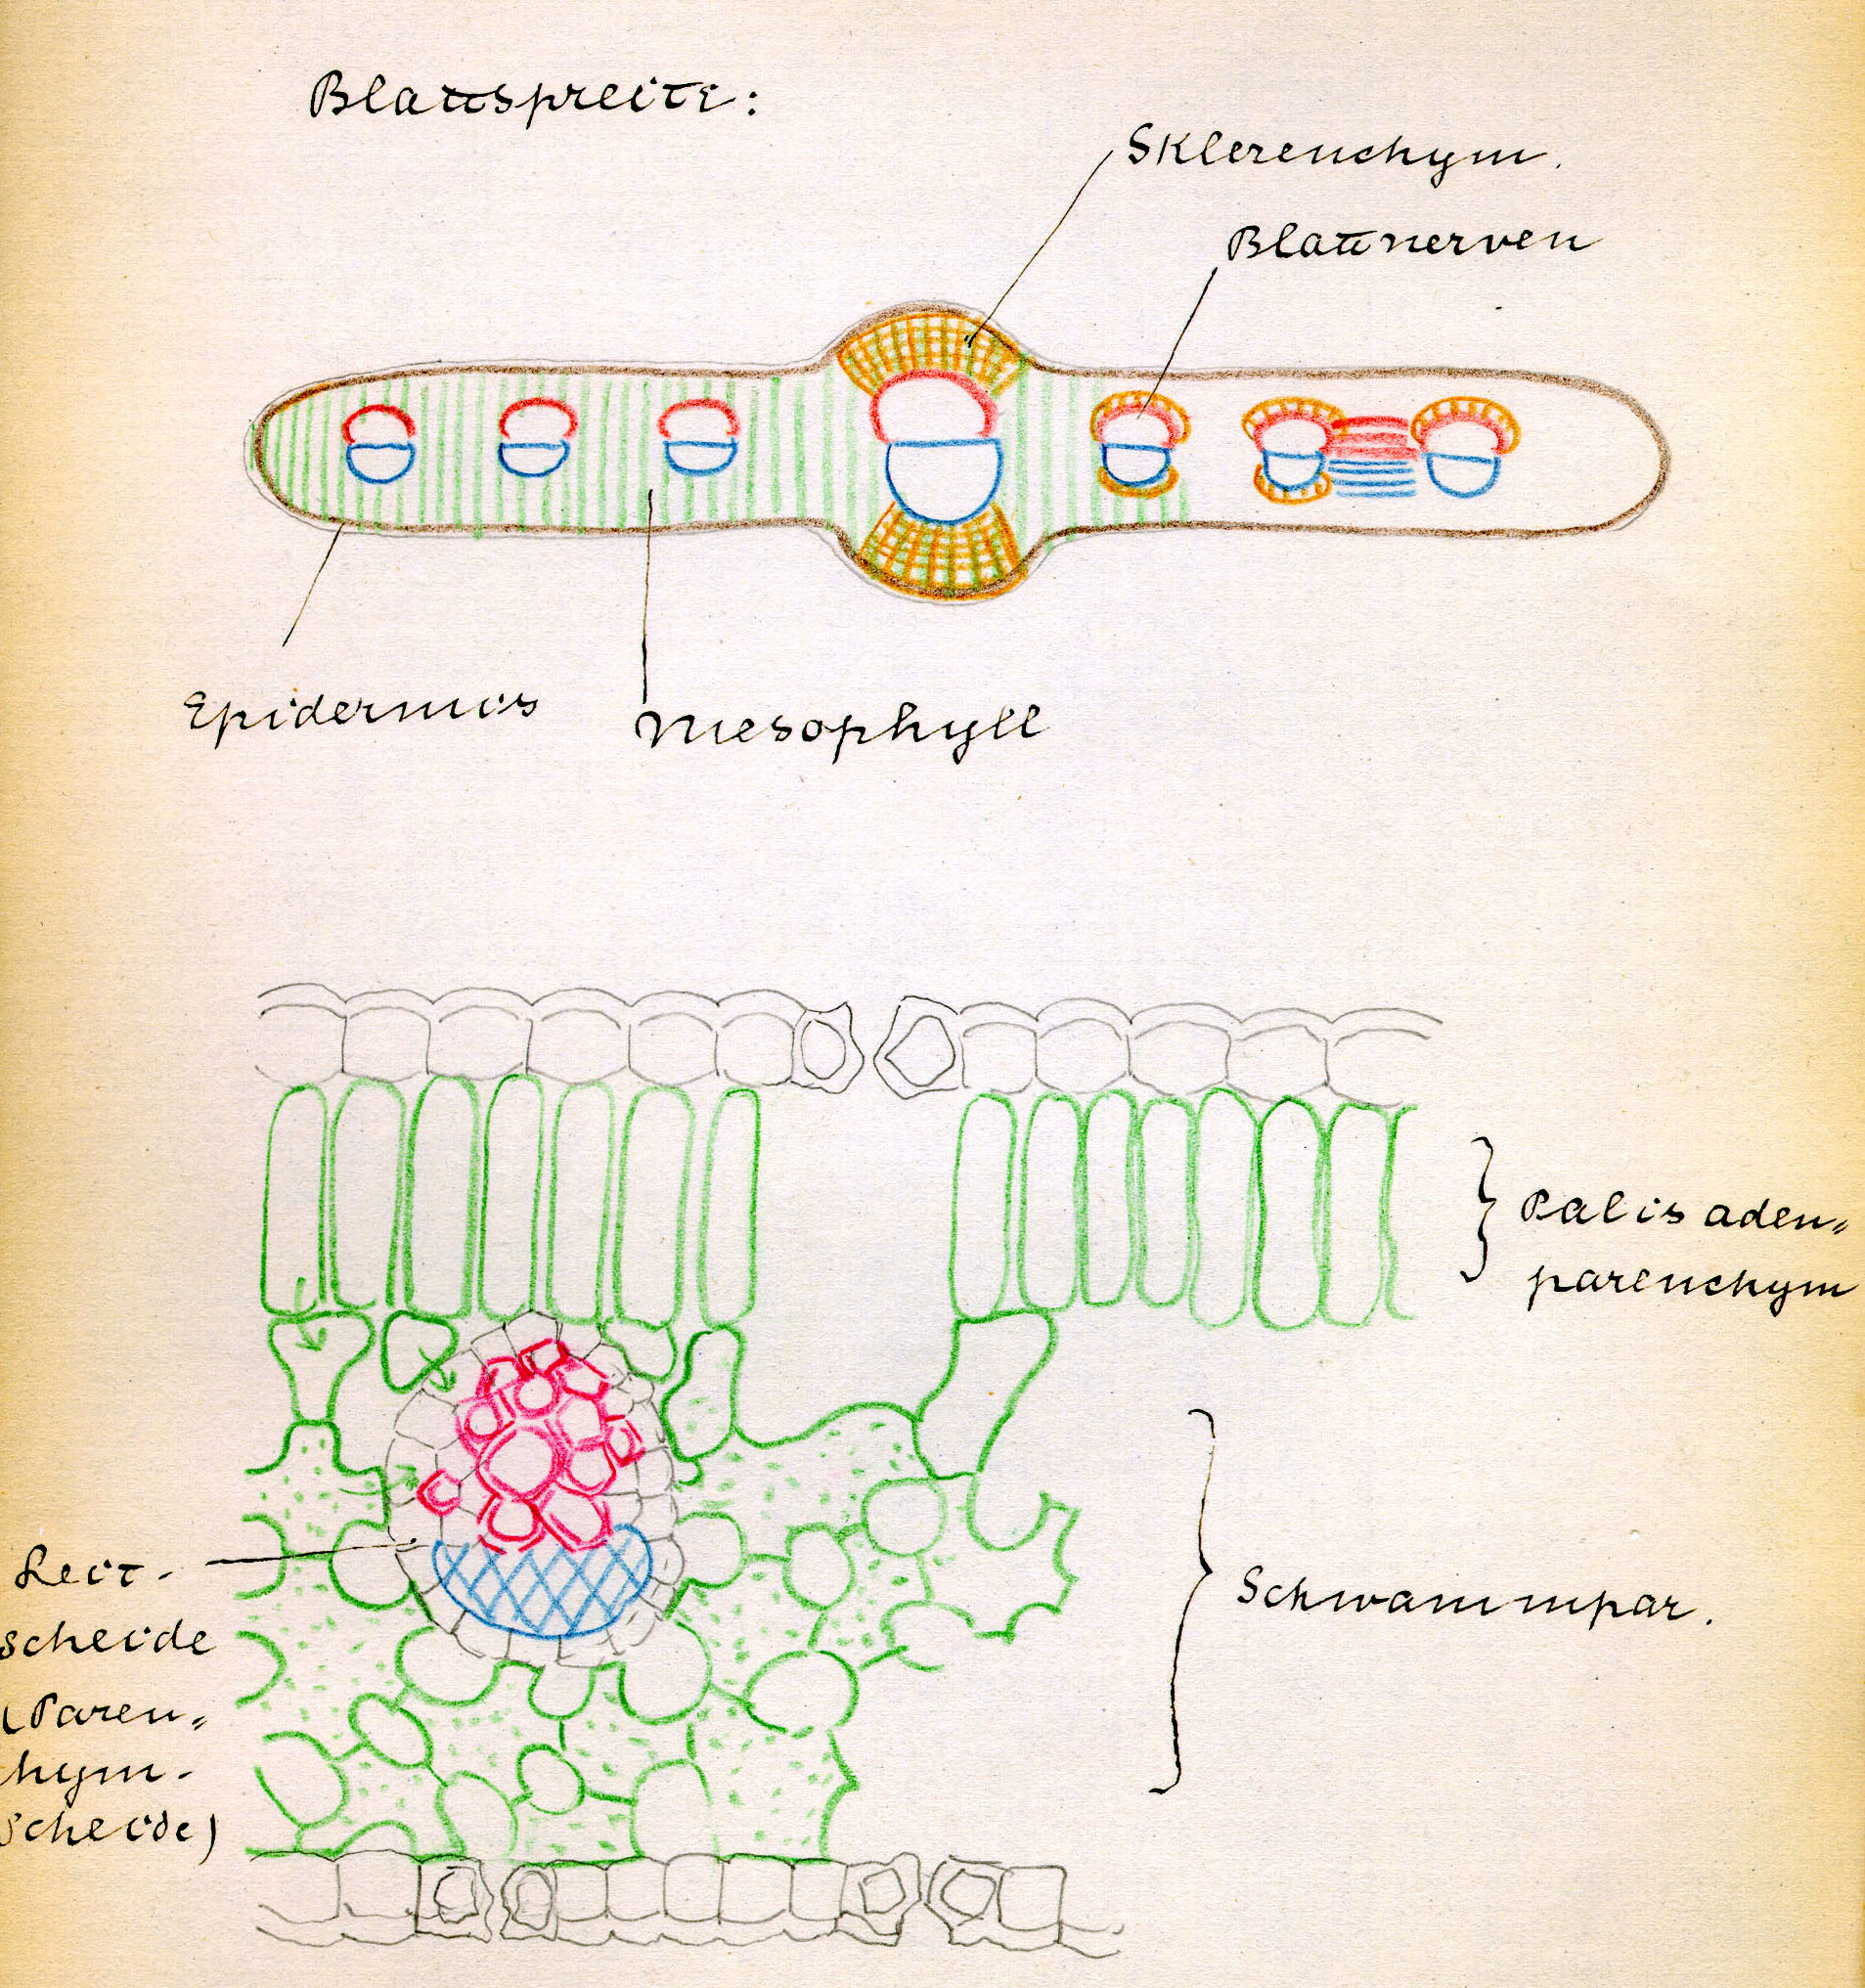 Blattspreite:
Sklerenchym.
Blattnerven
Epidermis
Mesophyll
Palisaden=
parenchym
Schwammpar.
Leit-
scheide
(Paren=
hym-
scheide)